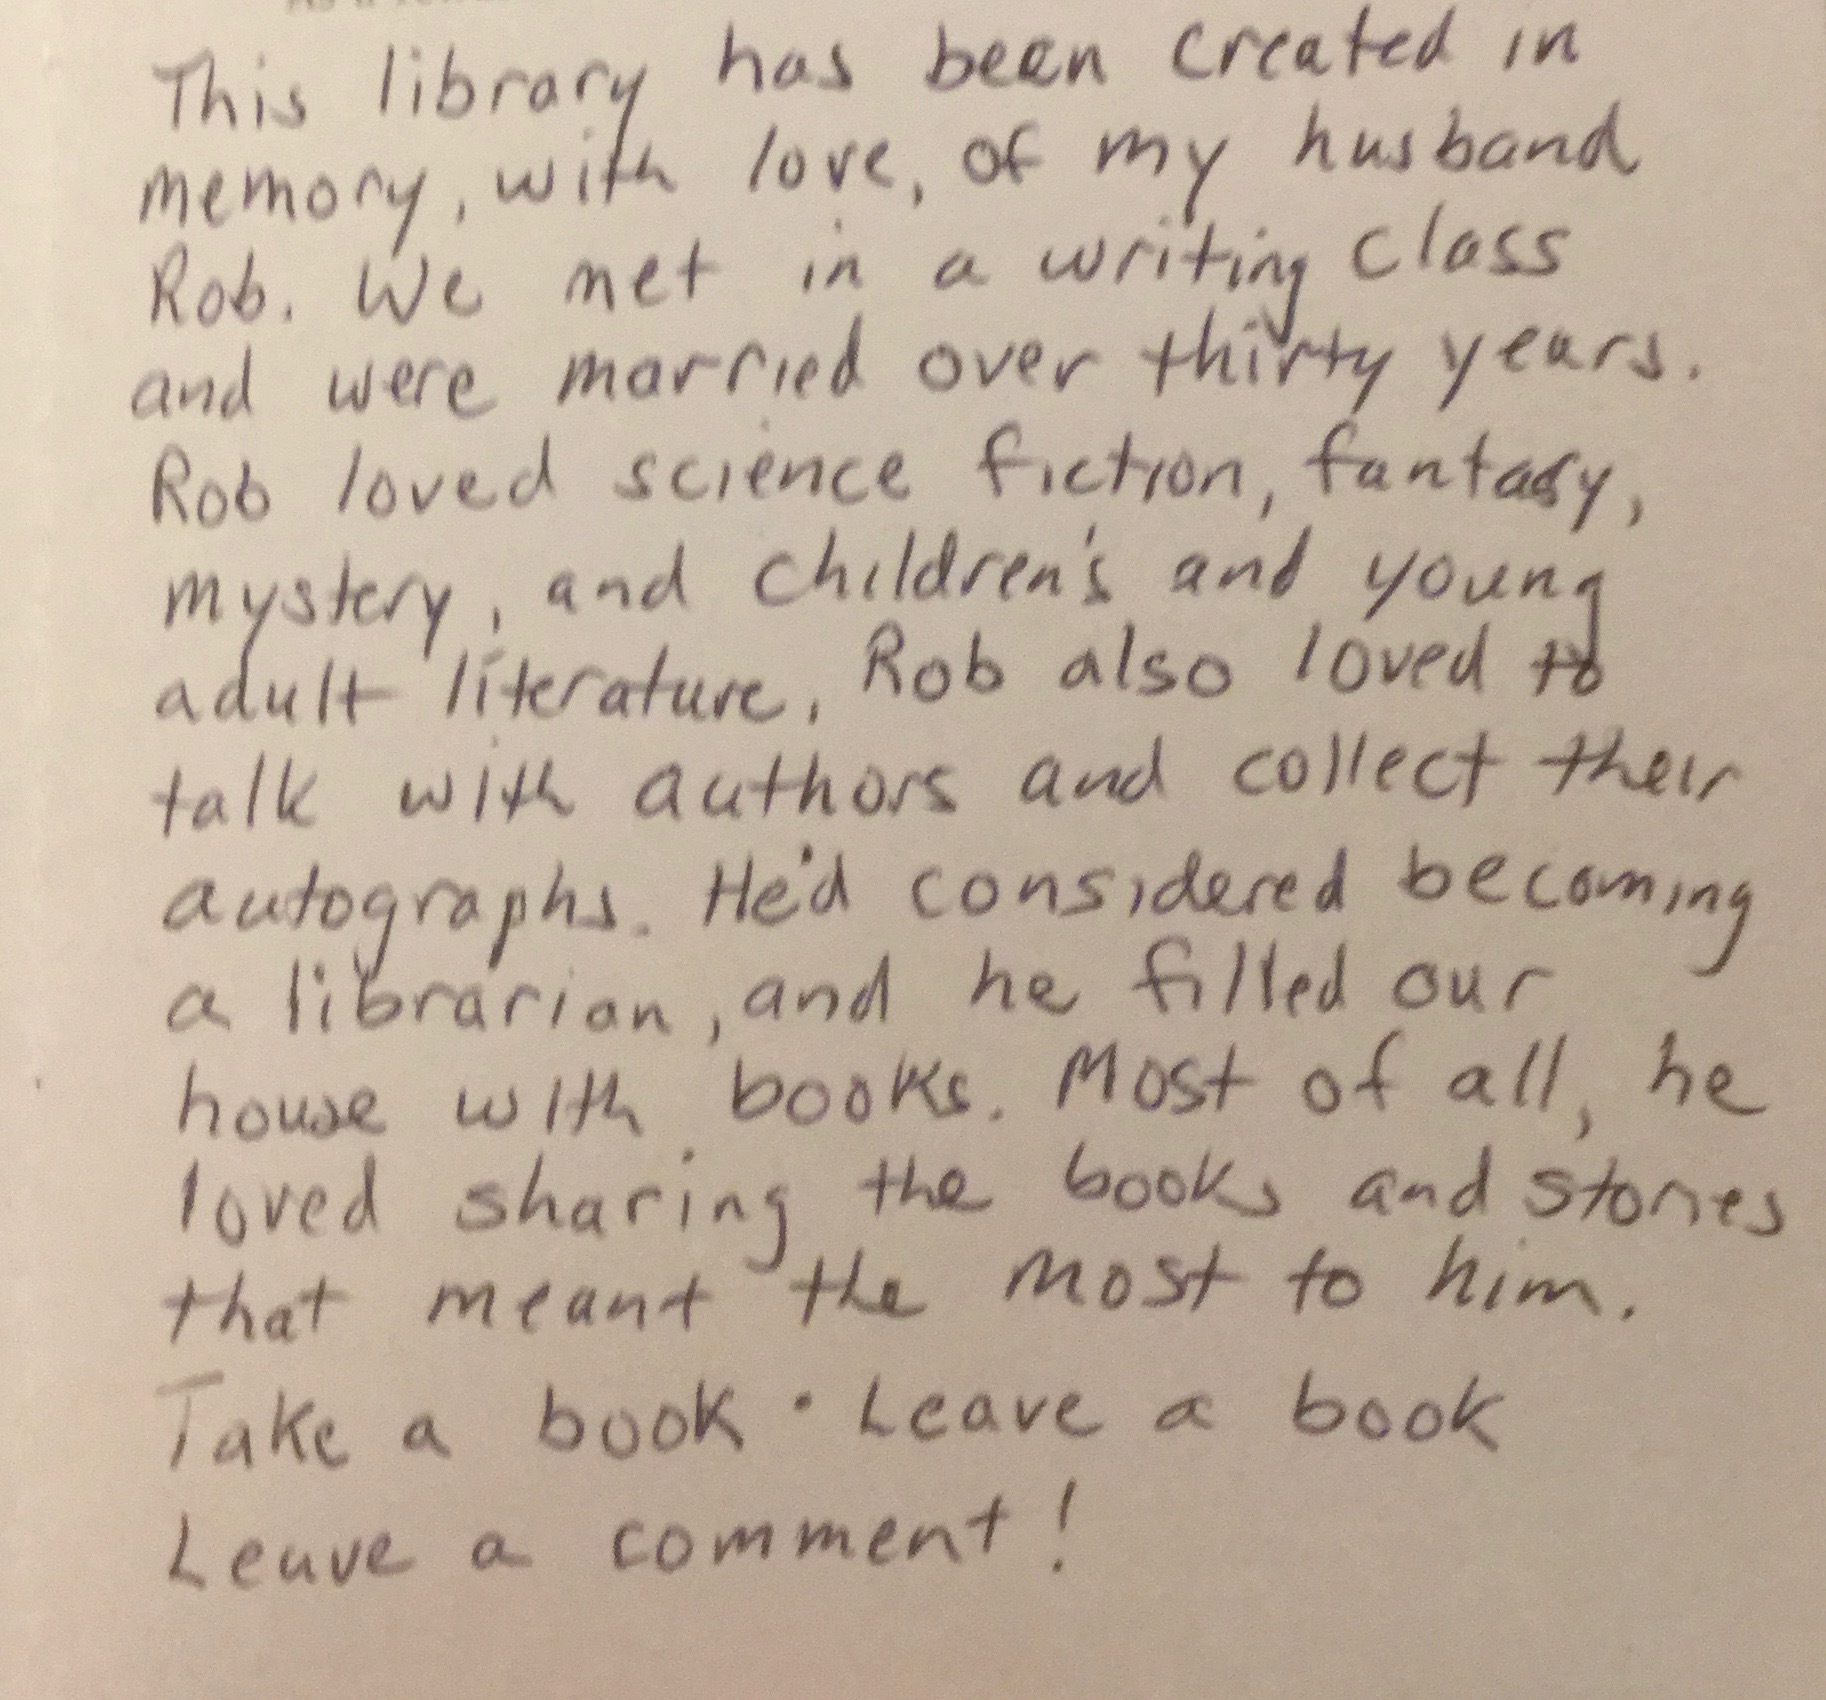 This library has been created in
memory, with love, of my husband
Rob. We met in a writing class
and were married over thirty years.
Rob loved science fiction, fantasy,
mystery, and children's and young
adult literature. Rob also loved to
talk with authors and collect their
autographs. He'd considered becoming
a librarian, and he filled our
house with books. Most of all, he
loved sharing the books and stories
that meant the most to him.
Take a book · Leave a book
Leave a comment!